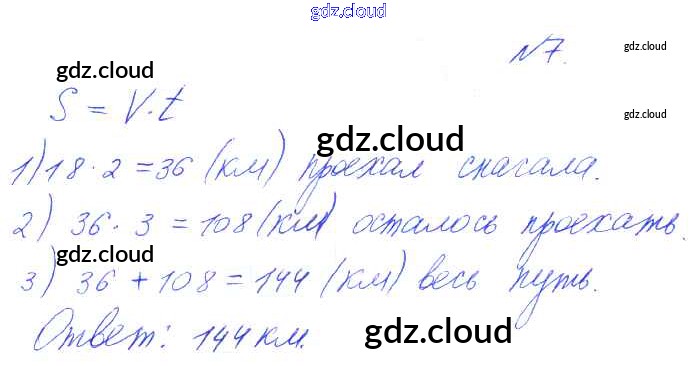 gdz.cloud
N7.
gdz.cloud
gdz.cloud
S = V·t
gdz.cloud
gdz.cloud
1) 18·2 =36 (км) проехал сначала.
2) 36·3 =108 (км) осталось проехать.
gdz.cloud
3) 36+108=144 (км) весь путь.
Ответ: 144 км.
gdz.cloud